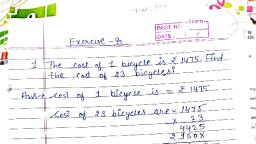 PAGE NO.
DATE / /
Exercise - 8
1 The cost of 1 bicycle is ₹ 1475. Find
the cost of 23 bicycles?
Ans→ Cost of 1 bicycle is = ₹ 1475
Cost of 23 bicycles are = 1475
x 23
4425
2950x